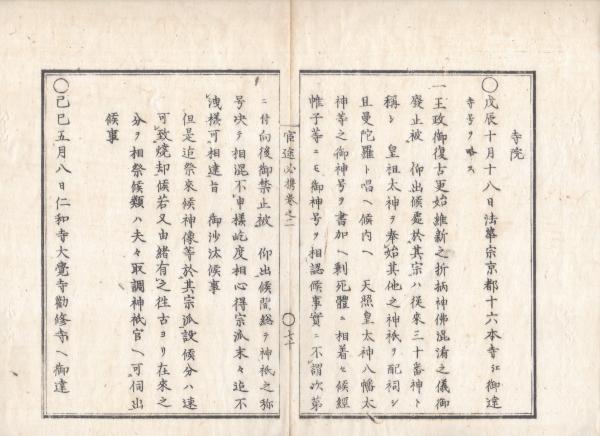 寺院
○戊辰十月十八日法華宗京都十六本寺江御達
寺号ヲ略ス
一王政御復古更始維新之折柄神佛混淆之儀御
廢止被　仰出候處於其宗ハ従来三十番神ト
稱シ　皇祖太神ヲ奉始其他之神祇ヲ配祠シ
且曼陀羅ト唱ヘ候内ヘ　天照皇太神八幡太
神等之御神号ヲ書加ヘ剰死體ニ相着セ候經
帷子等ニモ御神号ヲ相認候事實ニ不謂次第
官途必携巻之二
○七十
ニ付向後御禁止被　仰出候間総テ神祇之称
号决テ相混不申様屹度相心得宗派末々迄不
洩様可相達旨　御沙汰候事
但是迄祭來候神像等於其宗派設候分ハ速
可致燒却候若又由緒有之往古ヨリ在來之
分ヲ相祭候類ハ夫々取調神祇官ヘ可伺出
候事
○己巳五月八日仁和寺大覺寺勸修寺ヘ御達